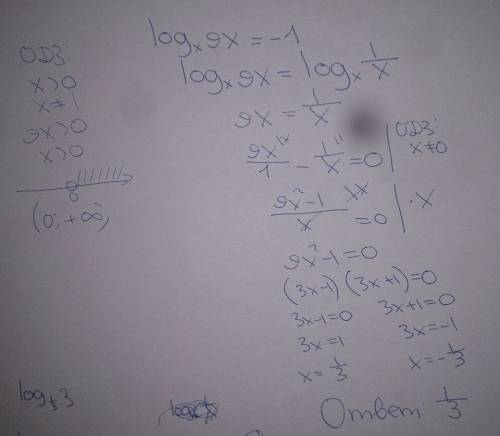 ОДЗ:
x>0
x≠1
9x>0
x>0
0
(0; +∞)
log_x 9x = -1
log_x 9x = log_x 1/x
9x = 1/x
9x/1 - 1/x = 0 | ОДЗ: x≠0
(9x²-1)/x = 0 | · x
9x²-1=0
(3x-1)(3x+1)=0
3x-1=0 3x+1=0
3x=1 3x=-1
x=1/3 x=-1/3
Ответ: 1/3